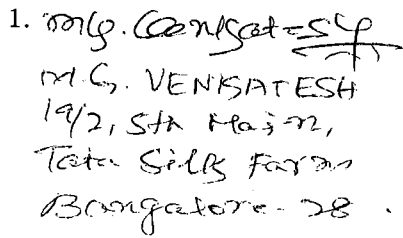 1. M.G. Venkatesh
M.G. VENKATESH
19/2, 5th Main,
Tata Silk Farm
Bangalore - 28.